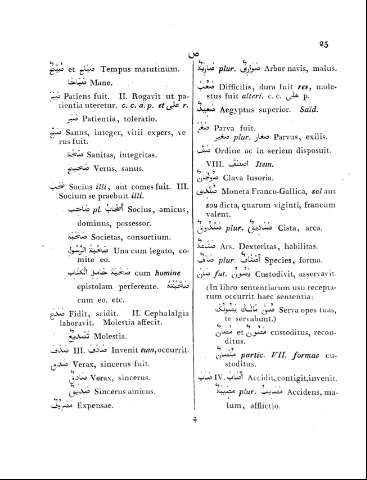 25
ص
صُبْح et صَبَاح Tempus matutinum.
صَبَاحًا Mane.
صَبَرَ Patiens fuit. II. Rogavit ut pa-
tientia uteretur. c. c. a. p. et على r.
صَبْر Patientia, toleratio.
صَحَّ Sanus, integer, vitii expers, ve
rus fuit.
صِحَّة Sanitas, integritas.
صَحِيح Verus, sanus.
صَحِبَ Socius illi, aut comes fuit. III.
Socium se praebuit illi.
صَاحِب pl. أَصْحَاب Socius, amicus,
dominus, possessor.
صُحْبَة Societas, consortium.
صُحْبَة الرَّسُول Una cum legato, co-
mite eo.
صُحْبَة حَامِل الكِتَاب cum homine
epistolam perferente. صُحْبَتُهُ
cum eo. etc.
صدع Fidit, scidit. II. Cephalalgia
laboravit. Molestia affecit.
تَصْدِيع Molestia.
صدف III. صَادَفَ Invenit eum, occurrit.
صدق Verax, sincerus fuit.
صَادِق Verax, sincerus.
صَدِيق Sincerus amicus.
مَصْرُوف Expensae.
صَارِيَة plur. صَوَارِي Arbor navis, malus.
صَعُبَ Difficilis, dura fuit res, mole-
stus fuit alteri. c. c. على p.
صَعِيد Aegyptus superior. Saïd.
صَغُرَ Parva fuit.
صَغِير plur. صِغَار Parvus, exilis.
صَفَّ Ordine ac in seriem disposuit.
VIII. اصطفّ Item.
صَوْلَجَان Clava lusoria.
صَلْدِي Moneta Franco-Gallica, sol aut
sou dicta, quarum viginti, francum
valent.
صُنْدُوق plur. صَنَادِيق Cista, arca.
صَنْعَة Ars. Dexteritas, habilitas.
صِنْف plur. أَصْنَاف Species, forma.
صَانَ fut. يَصُون Custodivit, asservavit.
(In libro sententiarum usu recepta-
rum occurrit haec sententia:
صُنْ مَالَكَ يَصُونُكَ Serva opes tuas,
te servabunt.)
مُصَان et مَصُون custoditus, recon-
ditus.
مُنْصَان partic. VII. formae cu-
stoditus.
صَاب IV. أَصَابَ Accidit, contigit, invenit.
مُصِيبَة plur. مَصَائِب Accidens, ma-
lum, afflictio.
4